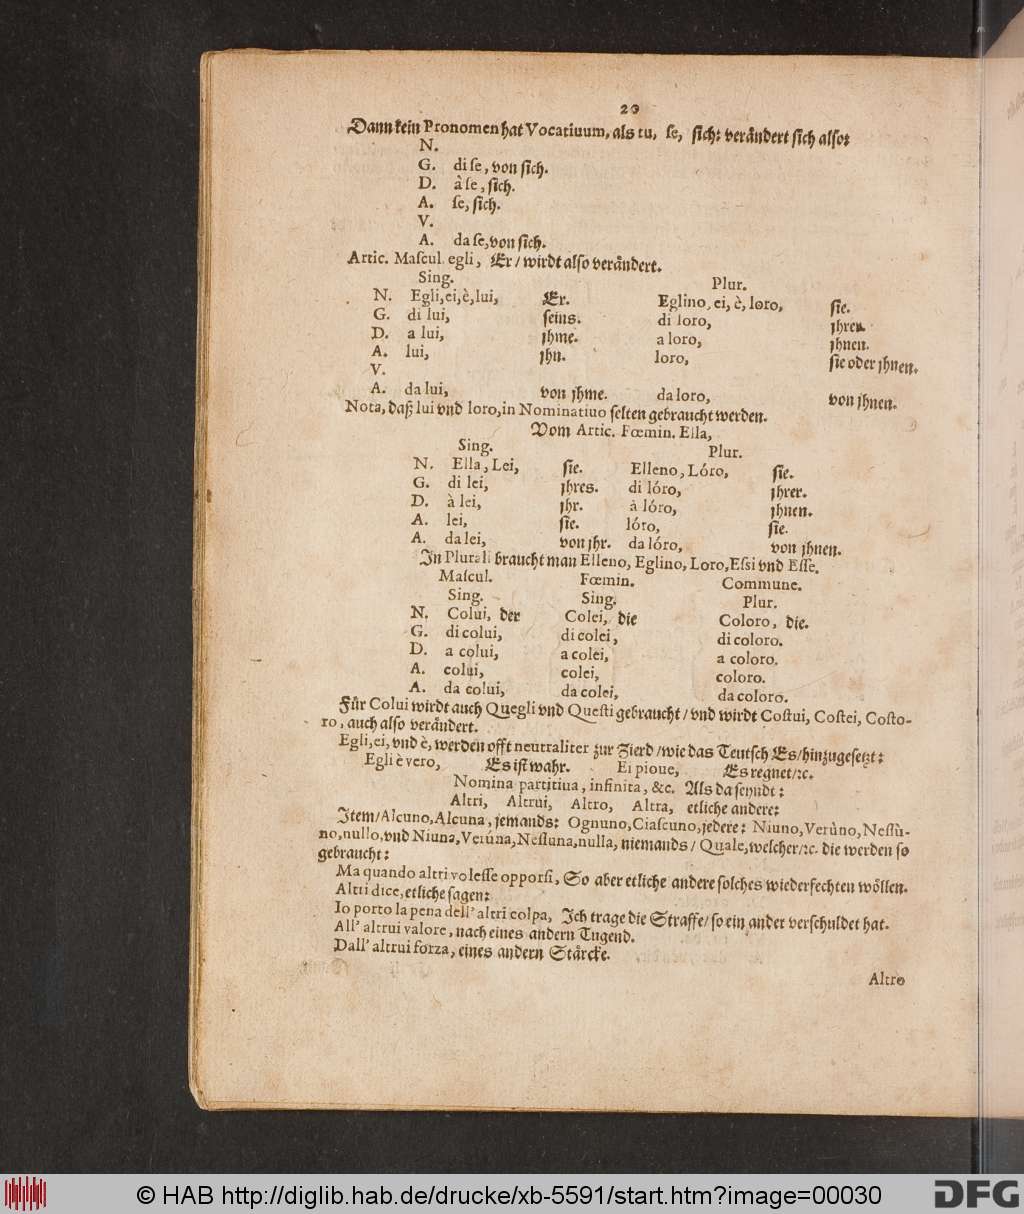 20
Dann kein Pronomen hat Vocatiuum, als tu, ſe, ſich: veråndert ſich alſo:
N.
G. di ſe, von ſich.
D. à ſe, ſich.
A. ſe, ſich.
V.
A. da ſe, von ſich.
Artic. Maſcul. egli, Er / wirdt alſo veråndert.
Sing. Plur.
N. Egli, ei, è, lui, Er. Eglino, ei, è, loro, ſie.
G. di lui, ſeins. di loro, jhrer.
D. a lui, jhme. a loro, jhnen.
A. lui, jhn. loro, ſie oder jhnen.
V.
A. da lui, von jhme. da loro, von jhnen.
Nota, daß lui vnd loro, in Nominatiuo ſelten gebraucht werden.
Vom Artic. Fœmin. Ella,
Sing. Plur.
N. Ella, Lei, ſie. Elleno, Lóro, ſie.
G. di lei, jhres. di lóro, jhrer.
D. à lei, jhr. à lóro, jhnen.
A. lei, ſie. lóro, ſie.
A. da lei, von jhr. da lóro, von jhnen.
In Plurali braucht man Elleno, Eglino, Loro, Eſsi vnd Eſſe.
Maſcul. Fœmin. Commune.
Sing. Sing. Plur.
N. Colui, der Colei, die Coloro, die.
G. di colui, di colei, di coloro.
D. a colui, a colei, a coloro.
A. colui, colei, coloro.
A. da colui, da colei, da coloro.
Fůr Colui wirdt auch Quegli vnd Queſti gebraucht / vnd wirdt Coſtui, Coſtei, Coſto-
ro, auch alſo veråndert.
Egli, ei, vnd è, werden offt neutraliter zur Zierd / wie das Teutſch Es / hinzugeſetzt:
Egli è vero, Es iſt wahr. Ei pioue, Es regnet / ꝛc.
Nomina partitiua, infinita, &c. Als da ſeyndt:
Altri, Altrui, Altro, Altra, etliche andere:
Item / Alcuno, Alcuna, jemands: Ognuno, Ciaſcuno, jedere: Niuno, Verùno, Neſſù-
no, nullo, vnd Niuna, Verúna, Neſſuna, nulla, niemands / Quale, welcher / ꝛc. die werden ſo
gebraucht:
Ma quando altri voleſſe opporſi, So aber etliche andere ſolches wiederfechten wöllen.
Altri dice, etliche ſagen:
Io porto la pena dell' altri colpa, Ich trage die Straffe / ſo ein ander verſchuldet hat.
All' altrui valore, nach eines andern Tugend.
Dall' altrui forza, eines andern Stårcke.
Altro
© HAB http://diglib.hab.de/drucke/xb-5591/start.htm?image=00030
DFG